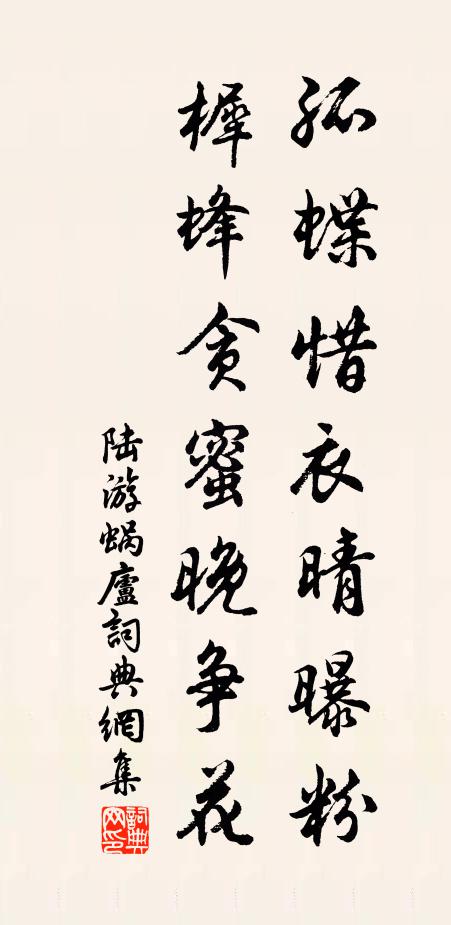 孤蝶惜衣晴曝粉
穉蜂贪蜜晚争花
陆游蜗廬詞典網集
詞典网印